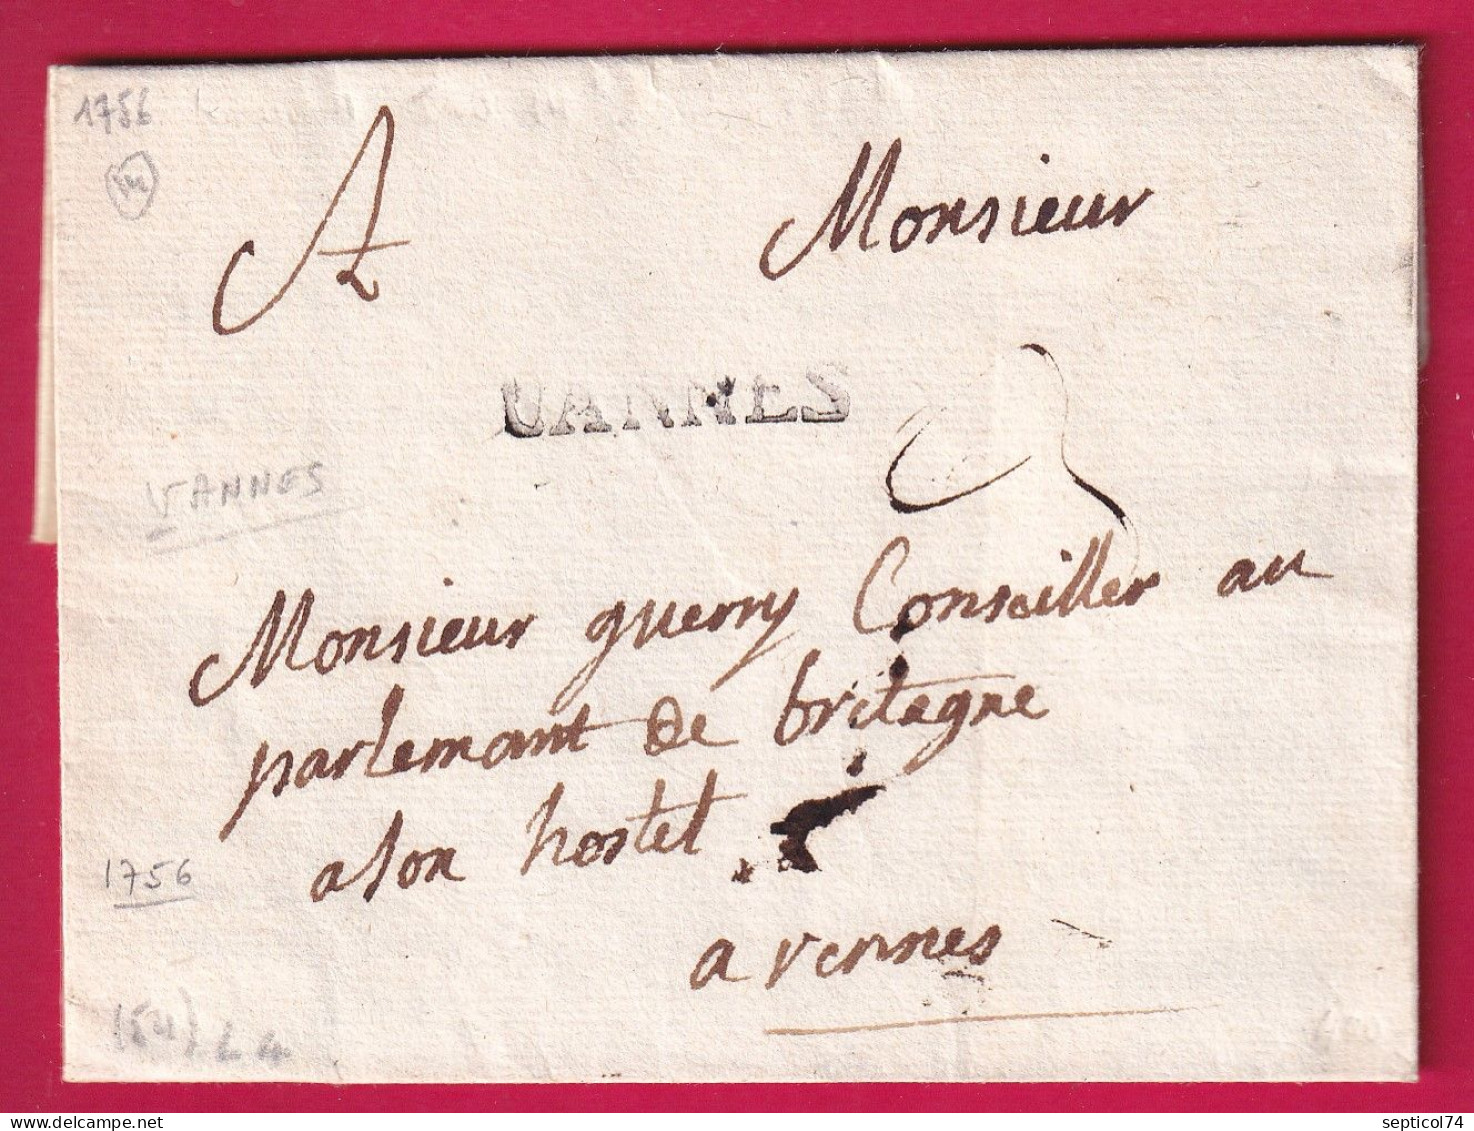 1756
A Monsieur
VANNES
VANNES
Monsieur guerry Conseiller au
parlemant de britagne
a son hostel
1756
a rennes
L 4
septicol74